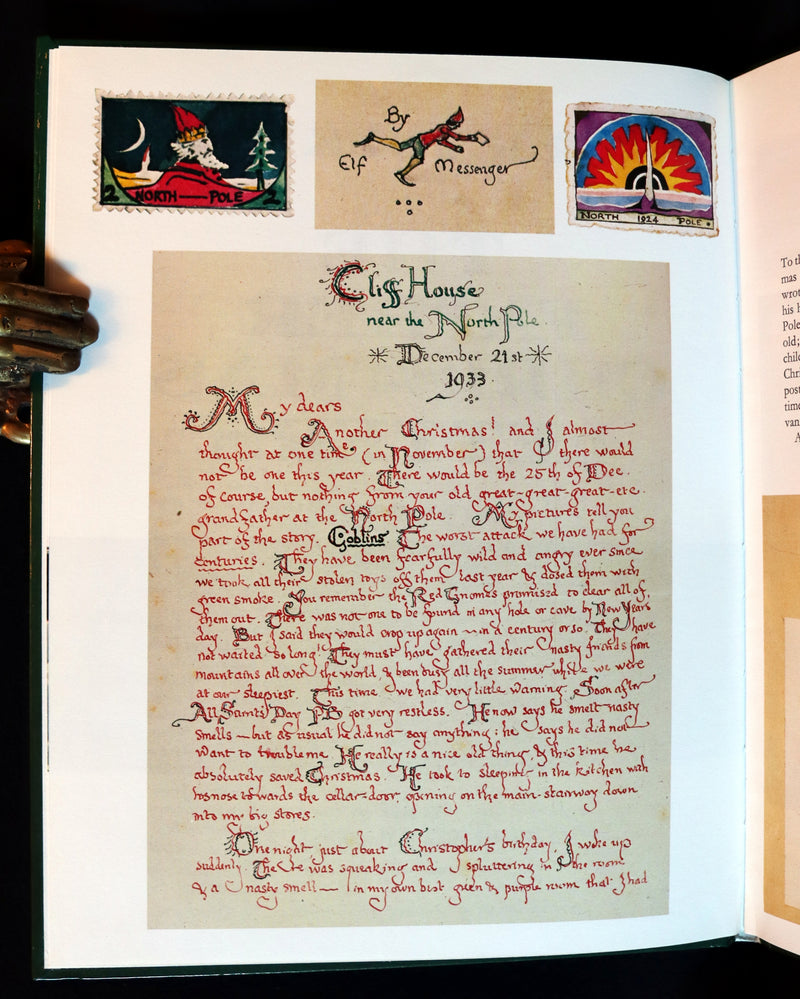 2 NORTH — POLE 2
By
Elf Messenger
NORTH 1824 POLE
Cliff House
near the North Pole
December 21st
1933
My dears
Another Christmas! and I almost
thought at one time (in November) that there would
not be one this year. There would be the 25th of Dec.
of course, but nothing from your old great-great-great-etc.
grandfather at the North Pole. My pictures tell you
part of the story. Goblins. The worst attack we have had for
centuries. They have been fearfully wild and angry ever since
we took all their stolen toys off them last year & dosed them with
green smoke. You remember the Red Gnomes promised to clear all of
them out. There was not one to be found in any hole or cave by New Years
day. But I said they would crop up again — in a century or so. They have
not waited so long! They must have gathered their nasty friends from
mountains all over the world, & been busy all the summer while we were
at our sleepiest. This time we had very little warning. Soon after
All Saints' Day PB got very restless. He now says he smelt nasty
smells — but as usual he did not say anything: he says he did not
want to trouble me. He really is a nice old thing, & this time he
absolutely saved Christmas. He took to sleeping in the kitchen with
his nose towards the cellar-door, opening on the main-stairway down
into my big stores.
One night just about Christopher's birthday, I woke up
suddenly. There was squeaking and spluttering in the room
& a nasty smell — in my own best green & purple room that I had
To th
mas
wrot
his h
Pole
old;
child
Chri
post
time
van
A